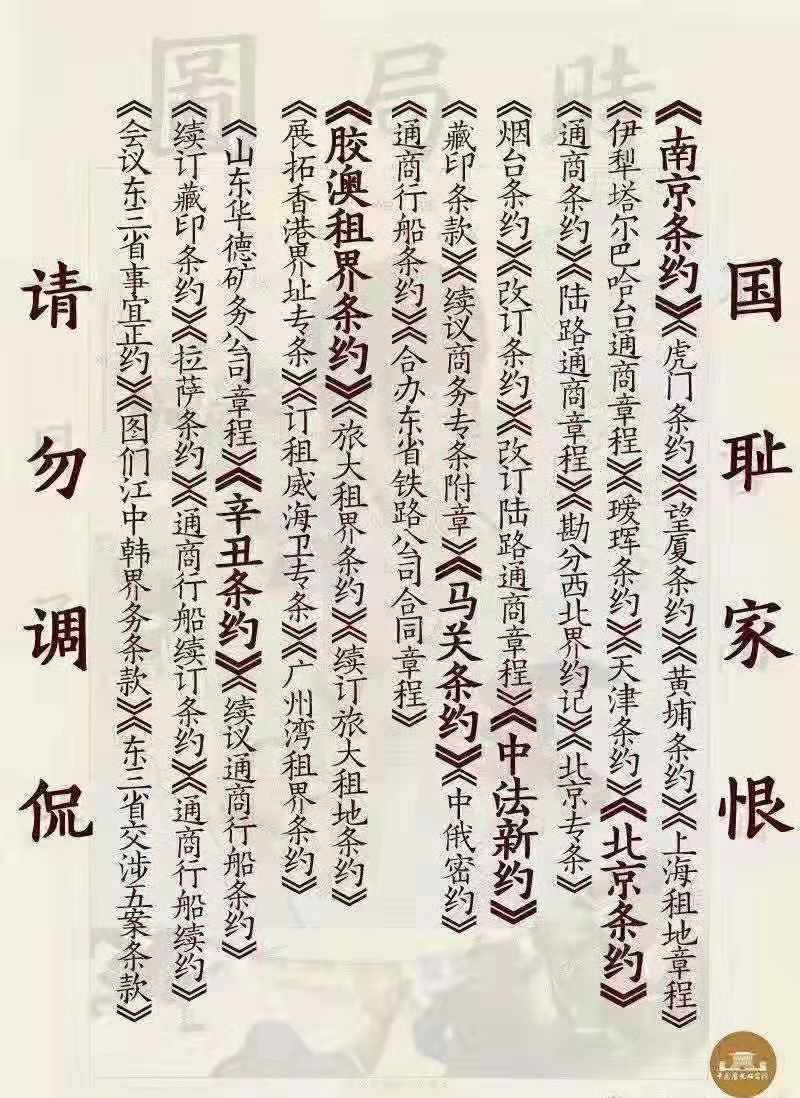 時局圖
国耻家恨
《南京条约》《虎门条约》《望厦条约》《黄埔条约》《上海租地章程》
《伊犁塔尔巴哈台通商章程》《瑷珲条约》《天津条约》《北京条约》
《通商条约》《陆路通商章程》《勘分西北界约记》《北京专条》
《烟台条约》《改订条约》《改订陆路通商章程》《中法新约》
《藏印条款》《续议商务专条附章》《马关条约》《中俄密约》
《通商行船条约》《合办东省铁路公司合同章程》
《胶澳租界条约》《旅大租界条约》《续订旅大租地条约》
《展拓香港界址专条》《订租威海卫专条》《广州湾租界条约》
《山东华德矿务公司章程》《辛丑条约》《续议通商行船条约》
《续订藏印条约》《拉萨条约》《通商行船续订条约》《通商行船续约》
《会议东三省事宜正约》《图们江中韩界务条款》《东三省交涉五案条款》
请勿调侃